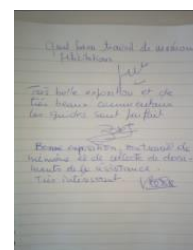 Quel beau travail de mémoire
Félicitations
Très belle exposition et de
très beaux commentaires
Les guides sont parfaits
Bonne exposition, travail de
mémoire et de collecte de docu-
ments de la résistance.
Très intéressant.